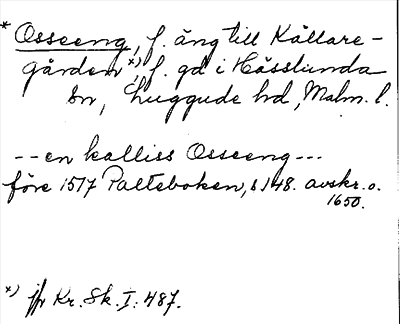 * Osseeng, f. äng till Källare-
gården *), f. gd i Hässlunda
sn, Luggude hd, Malm. l.
-- en kalliss Osseeng ---
före 1517 Palteboken, s 148. avskr. o.
1650.
*) jfr Kr. Sk. I: 487.